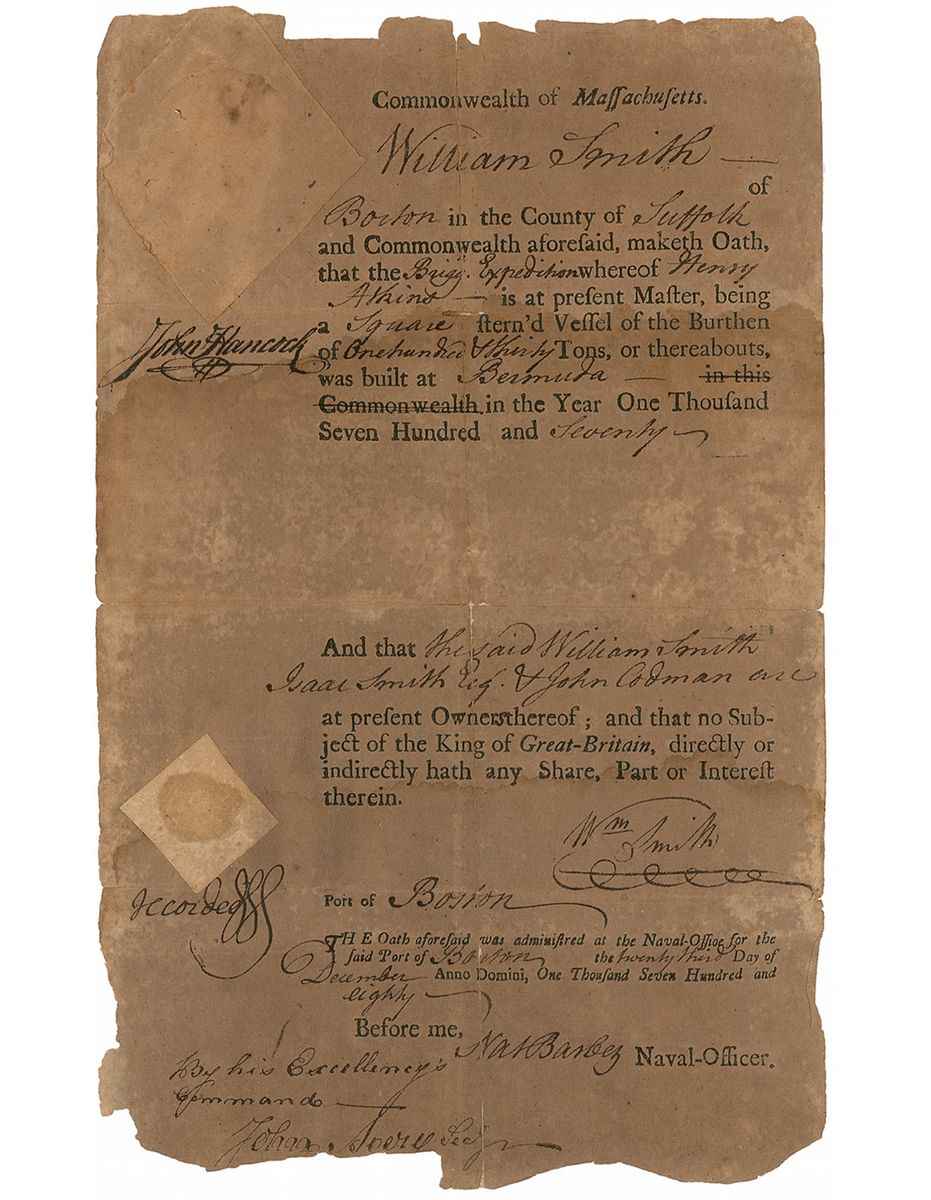 Commonwealth of Maſſachuſetts.
William Smith —
of
Boston in the County of Suffolk
and Commonwealth aforeſaid, maketh Oath,
that the Brigg. Expedition whereof Henry
Atkins — is at preſent Maſter, being
a Square ſtern'd Veſſel of the Burthen
John Hancock
of One hundred & thirty Tons, or thereabouts,
was built at Bermuda — in this
Commonwealth. in the Year One Thouſand
Seven Hundred and Seventy
And that the said William Smith
Isaac Smith Esq. & John Codman are
at preſent Owners thereof ; and that no Sub-
ject of the King of Great-Britain, directly or
indirectly hath any Share, Part or Intereſt
therein.
Wm Smith
recorded
Port of Boston
THE Oath aforeſaid was adminiſtred at the Naval-Office for the
ſaid Port of Boston the twenty third Day of
December Anno Domini, One Thouſand Seven Hundred and
eighty —
Before me,
Nat Barber Naval-Officer.
By his Excellency's
Command —
John Avery Secy